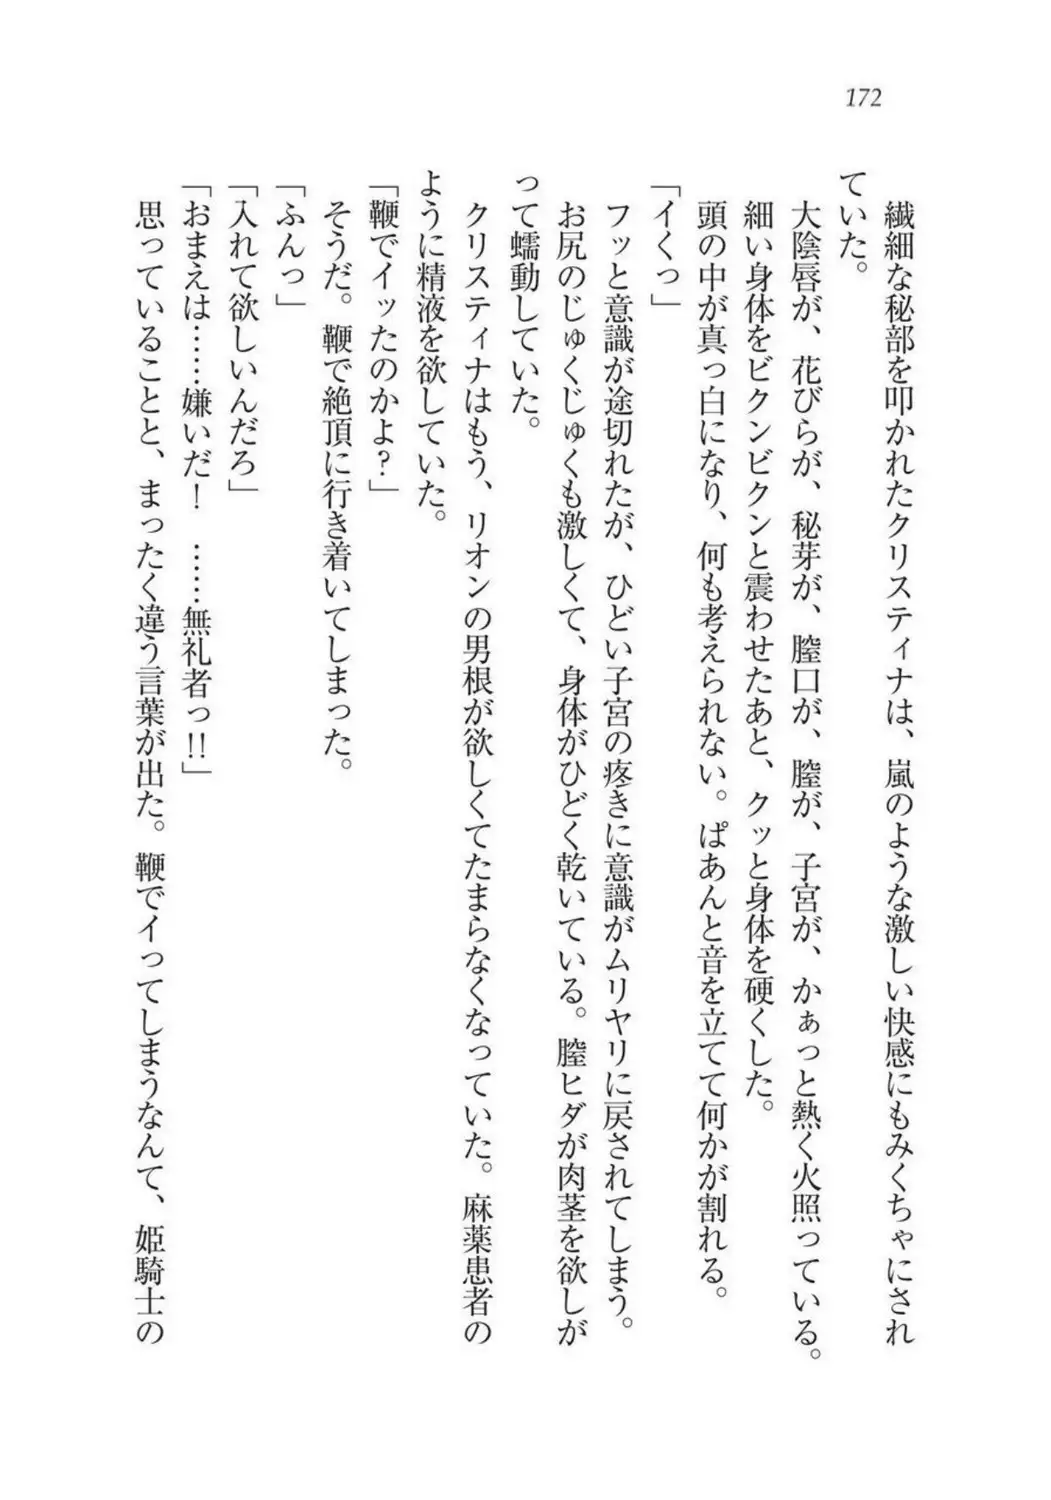 172
繊細な秘部を叩かれたクリスティナは、嵐のような激しい快感にもみくちゃにされ
ていた。
大陰唇が、花びらが、秘芽が、膣口が、膣が、子宮が、かぁっと熱く火照っている。
細い身体をビクンビクンと震わせたあと、クッと身体を硬くした。
頭の中が真っ白になり、何も考えられない。ぱあんと音を立てて何かが割れる。
「イくっ」
フッと意識が途切れたが、ひどい子宮の疼きに意識がムリヤリに戻されてしまう。
お尻のじゅくじゅくも激しくて、身体がひどく乾いている。膣ヒダが肉茎を欲しが
って蠕動していた。
クリスティナはもう、リオンの男根が欲しくてたまらなくなっていた。麻薬患者の
ように精液を欲していた。
「鞭でイッたのかよ?」
そうだ。鞭で絶頂に行き着いてしまった。
「ふんっ」
「入れて欲しいんだろ」
「おまえは……嫌いだ! ……無礼者っ!!」
思っていることと、まったく違う言葉が出た。鞭でイってしまうなんて、姫騎士の